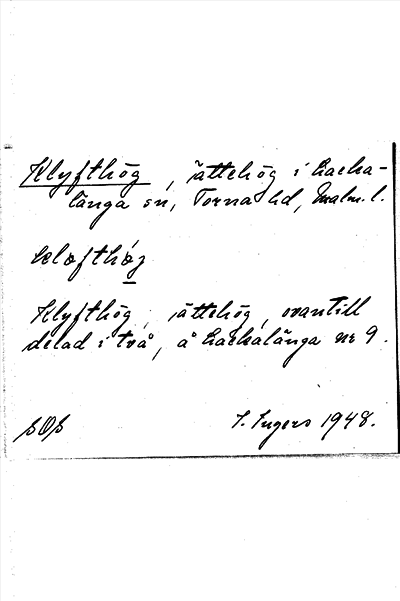 Klyfthög, ättehög i Lacka-
länga sn, Torna hd, Malm. l.
kløfthøg
Klyfthög, ättehög, ovantill
delad i två, å Lackalänga nr 9.
I. Ingers 1948.